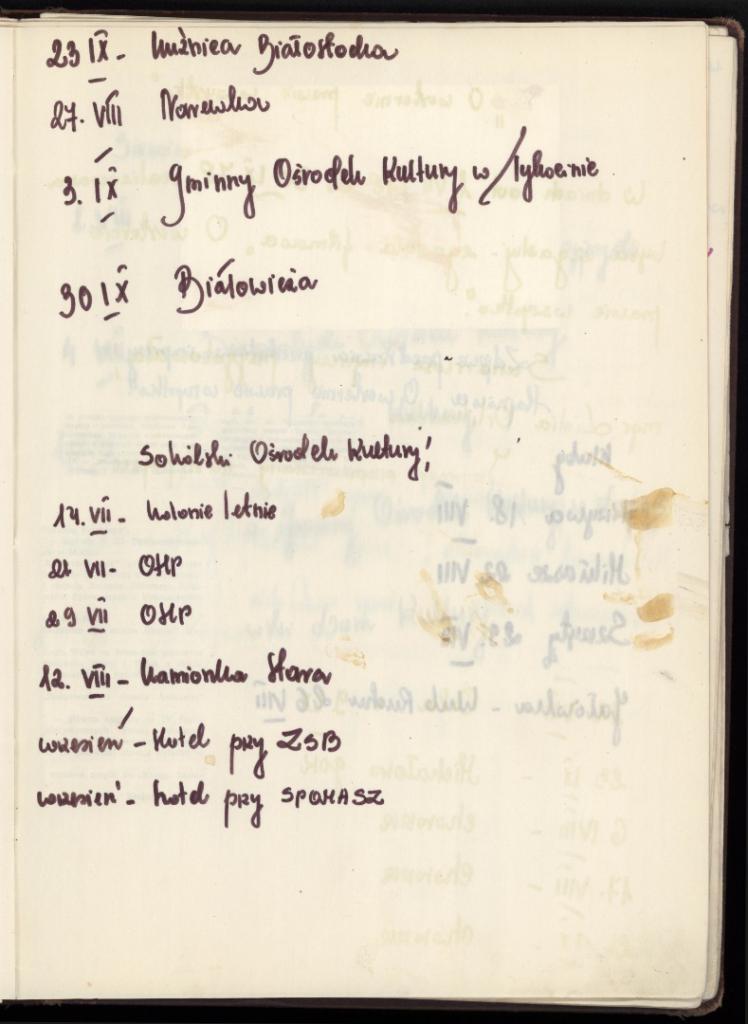 23 IX - Kuźnica Białostocka
27. VIII Narewka
3. IX Gminny Ośrodek Kultury w Tykocinie
30 IX Białowieża
Sokólski Ośrodek Kultury!
14. VII - kolonie letnie
21 VII - OHP
29 VII OHP
12. VIII - Kamionka Stara
wrzesień - Hotel przy ZSB
wrzesień - hotel przy SPOMASZ